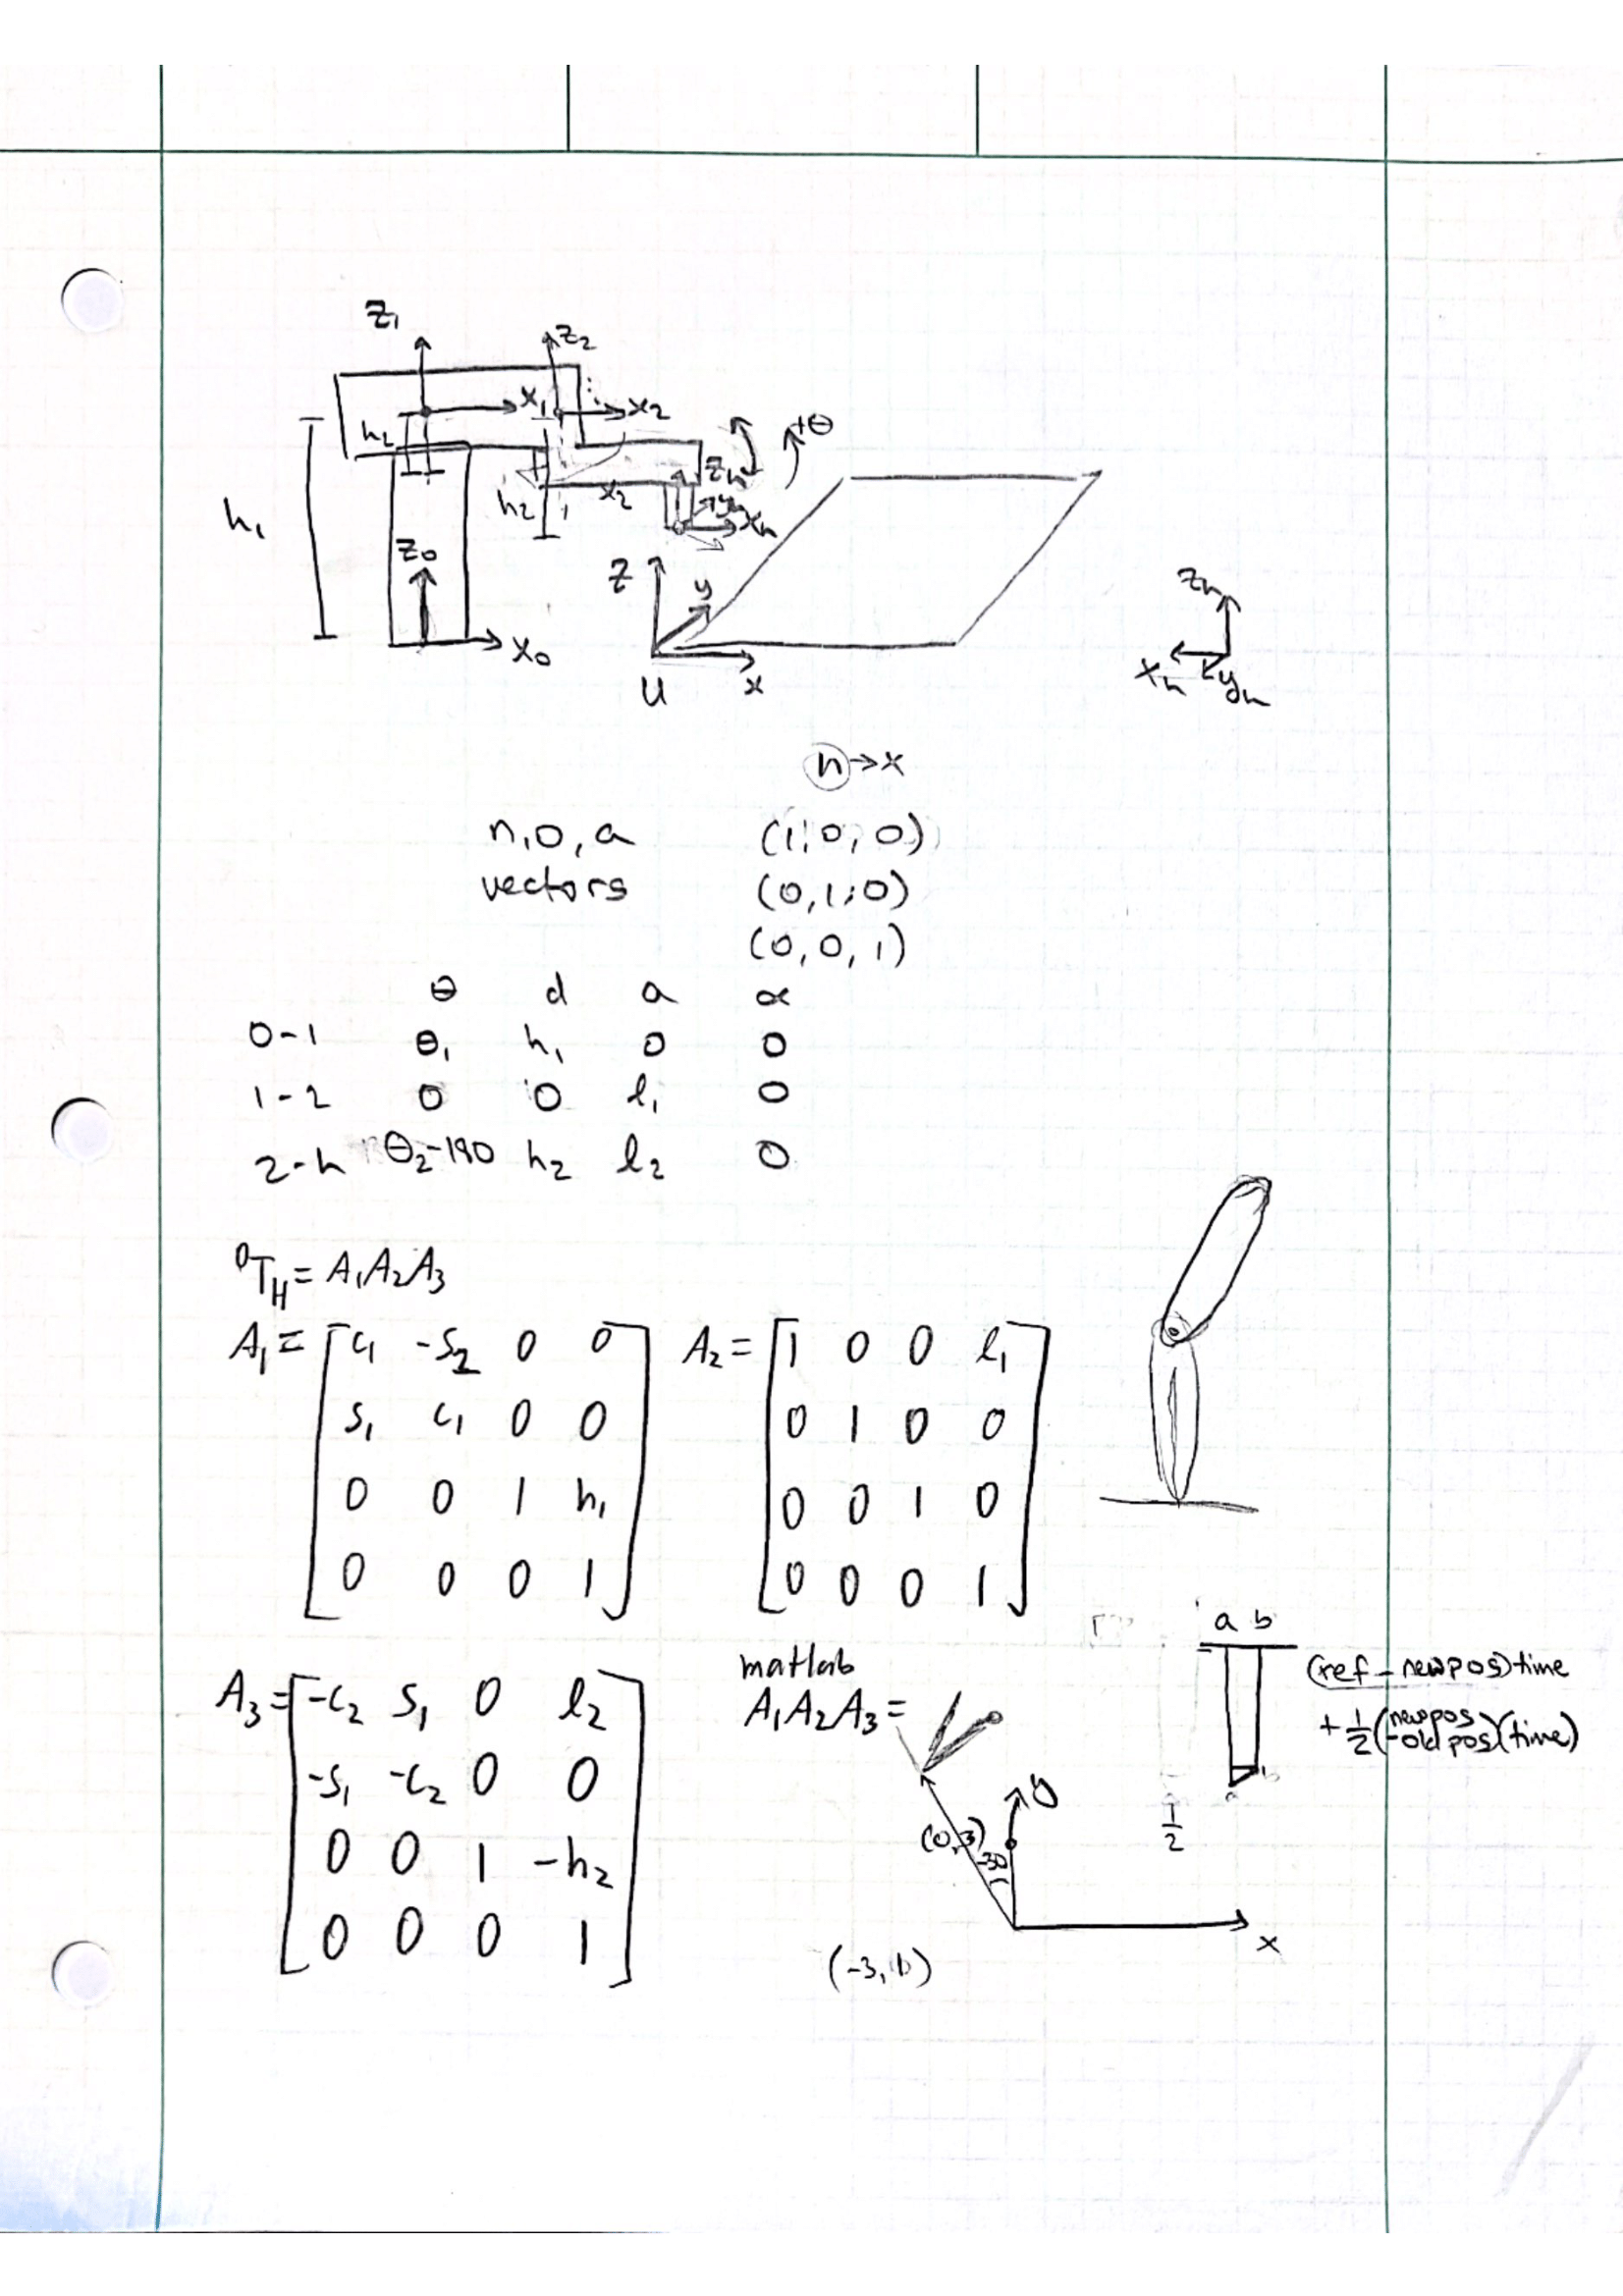 z₁
z₂
x₁
x₂
+θ
h₂
zₕ
yₕ
xₕ
x₂
h₂
h₁
z₀
x₀
z
y
x
U
zₕ
xₕ
yₕ
n→x
n,o,a (1,0,0)
vectors (0,1,0)
(0,0,1)
θ d a α
0-1 θ₁ h₁ 0 0
1-2 0 0 l₁ 0
2-h θ₂-180 h₂ l₂ 0
⁰T_H = A₁A₂A₃
A₁ = [c₁ -s₂ 0 0] A₂ = [1 0 0 l₁]
[s₁ c₁ 0 0] [0 1 0 0]
[0 0 1 h₁] [0 0 1 0]
[0 0 0 1] [0 0 0 1]
a b
A₃ = [-c₂ s₁ 0 l₂]
[-s₁ -c₂ 0 0]
[0 0 1 -h₂]
[0 0 0 1]
matlab
A₁A₂A₃ =
(ref - newpos)time
+ 1/2 (newpos - old pos)(time)
y
(0,3)
-30
1/2
x